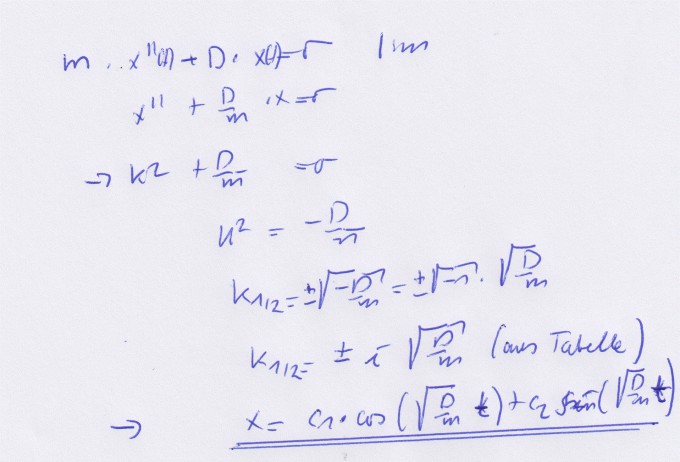 m · x''(t) + D · x(t) = 0 | :m
x'' + D/m · x = 0
→ k² + D/m = 0
k² = -D/m
k₁/₂ = ±√(-D/m) = ±√-1 · √(D/m)
k₁/₂ = ± i √(D/m) (aus Tabelle)
→ x = c₁ · cos(√(D/m) t) + c₂ sin(√(D/m) t)